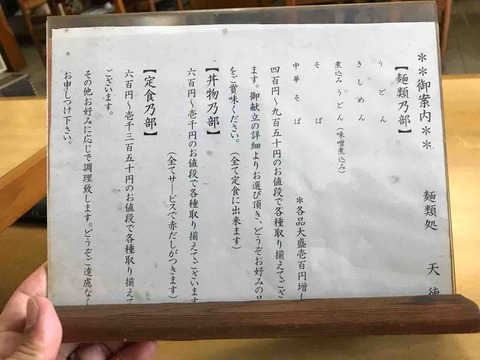 ＊＊御案内＊＊
麺類処 天徳
【麺類乃部】
うどん
きしめん
煮込みうどん（味噌煮込み）
そば
中華そば
＊各品大盛壱百円増し
四百円〜九百五十円のお値段で各種取り揃えてござ
ます。御献立の詳細よりお選び頂き、どうぞお好みの品
をご賞味ください。（全て定食に出来ます）
【丼物乃部】
六百円〜壱千円のお値段で各種取り揃えてございます
（全てサービスで赤だしがつきます）
【定食乃部】
六百円〜壱千三百五十円のお値段で各種取り揃えて
ございます。
その他お好みに応じで調理致します。どうぞご遠慮なく
お申しつけ下さい。